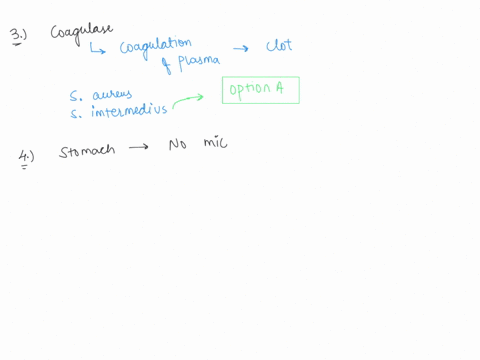 3.) Coagulase
↳ Coagulation of plasma → clot
S. aureus
S. intermedius → option A
4.) Stomach → No mic